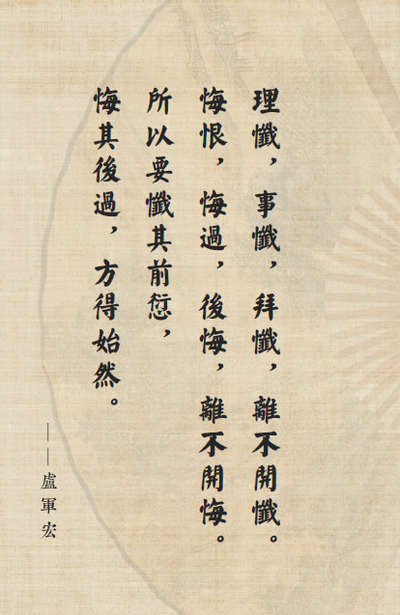 理懺，事懺，拜懺，離不開懺。
悔恨，悔過，後悔，離不開悔。
所以要懺其前愆，
悔其後過，方得始然。
——盧軍宏